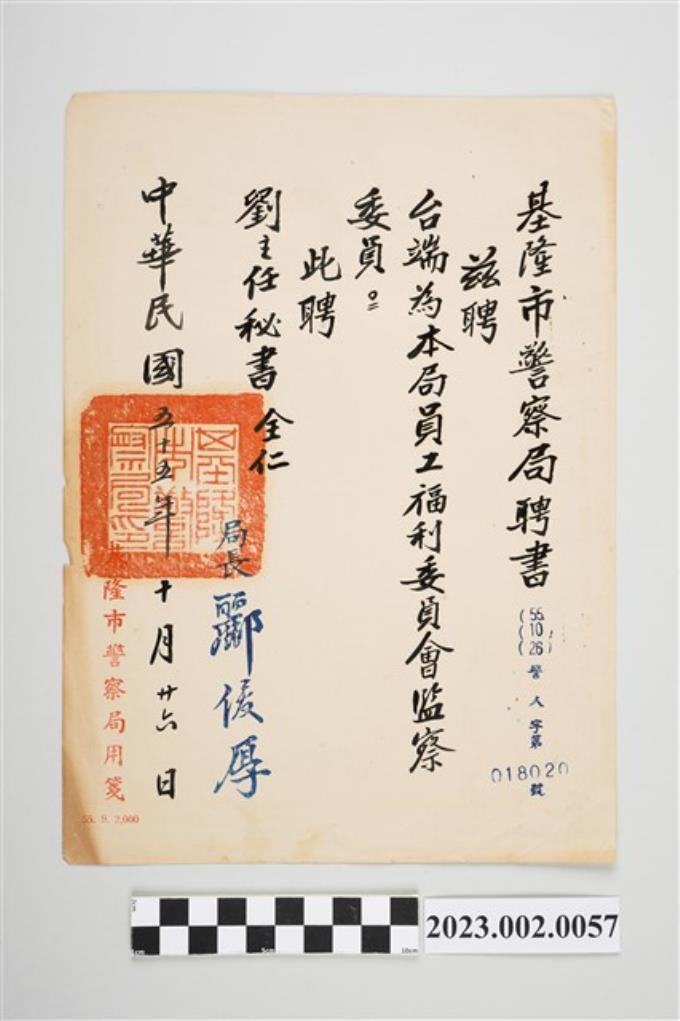 基隆市警察局聘書
(55)
(10)
(26)
警人字第
018020
號
茲聘
台端為本局員工福利委員會監察
委員。
此聘
劉主任秘書 全仁
局長 酈俊厚
中華民國五十五年十月廿六日
基隆市警察局印
基隆市警察局用箋
55. 9. 2,000
1cm
5cm
10cm
2023.002.0057